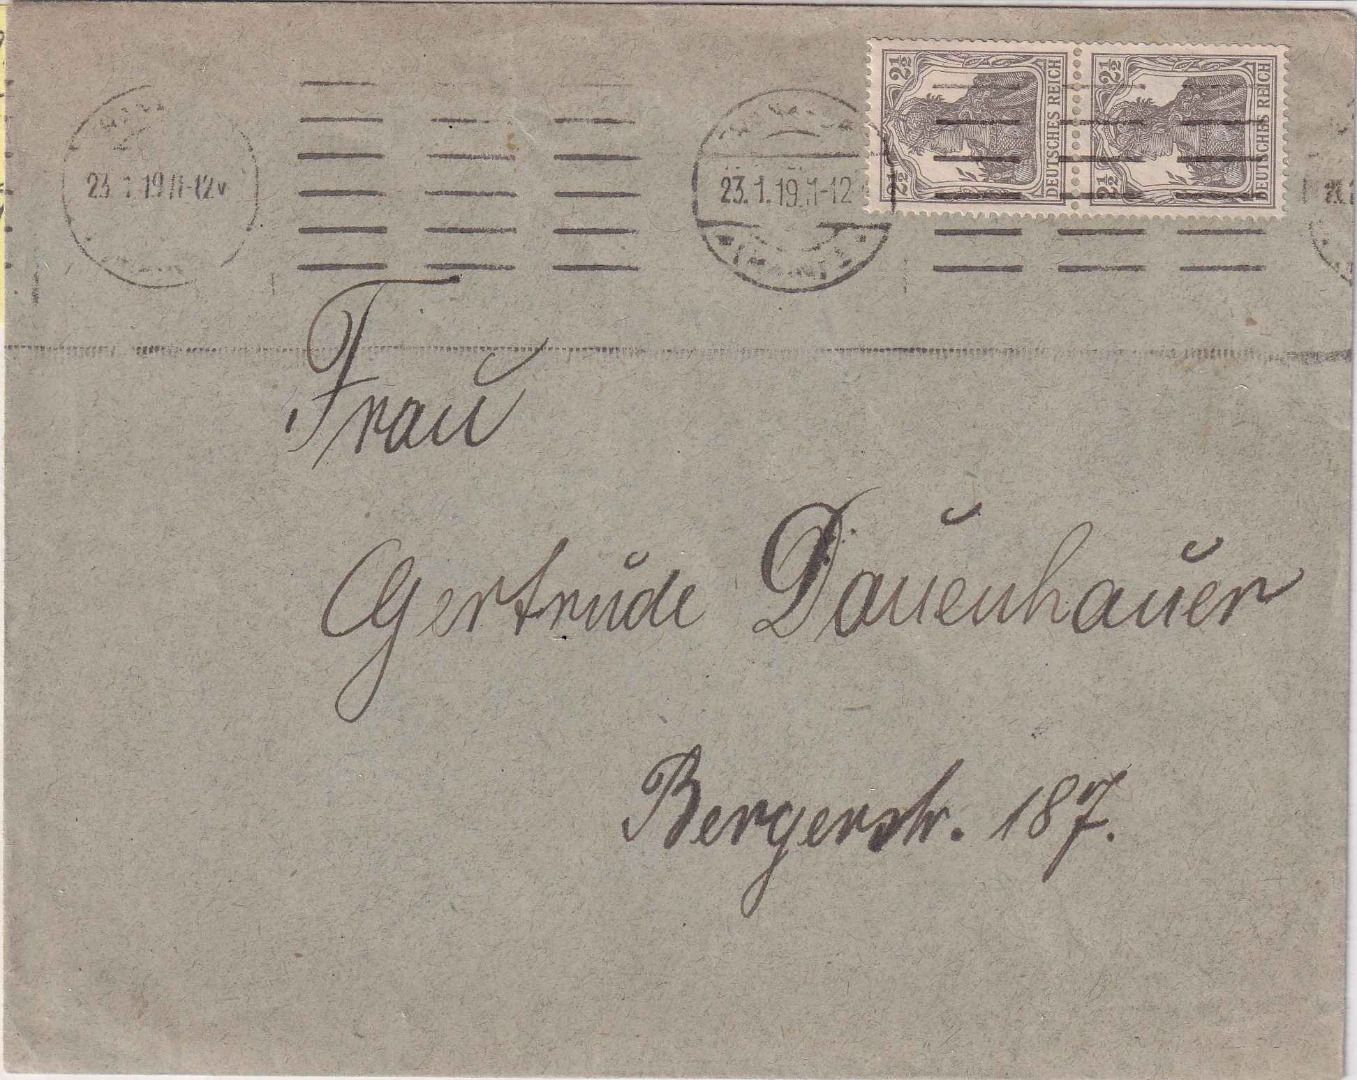 23.1.19 11-12V
23.1.19 11-12
2½
2½
DEUTSCHES REICH
2½
2½
DEUTSCHES REICH
Frau
Gertrude Dauenhauer
Bergerstr. 187.